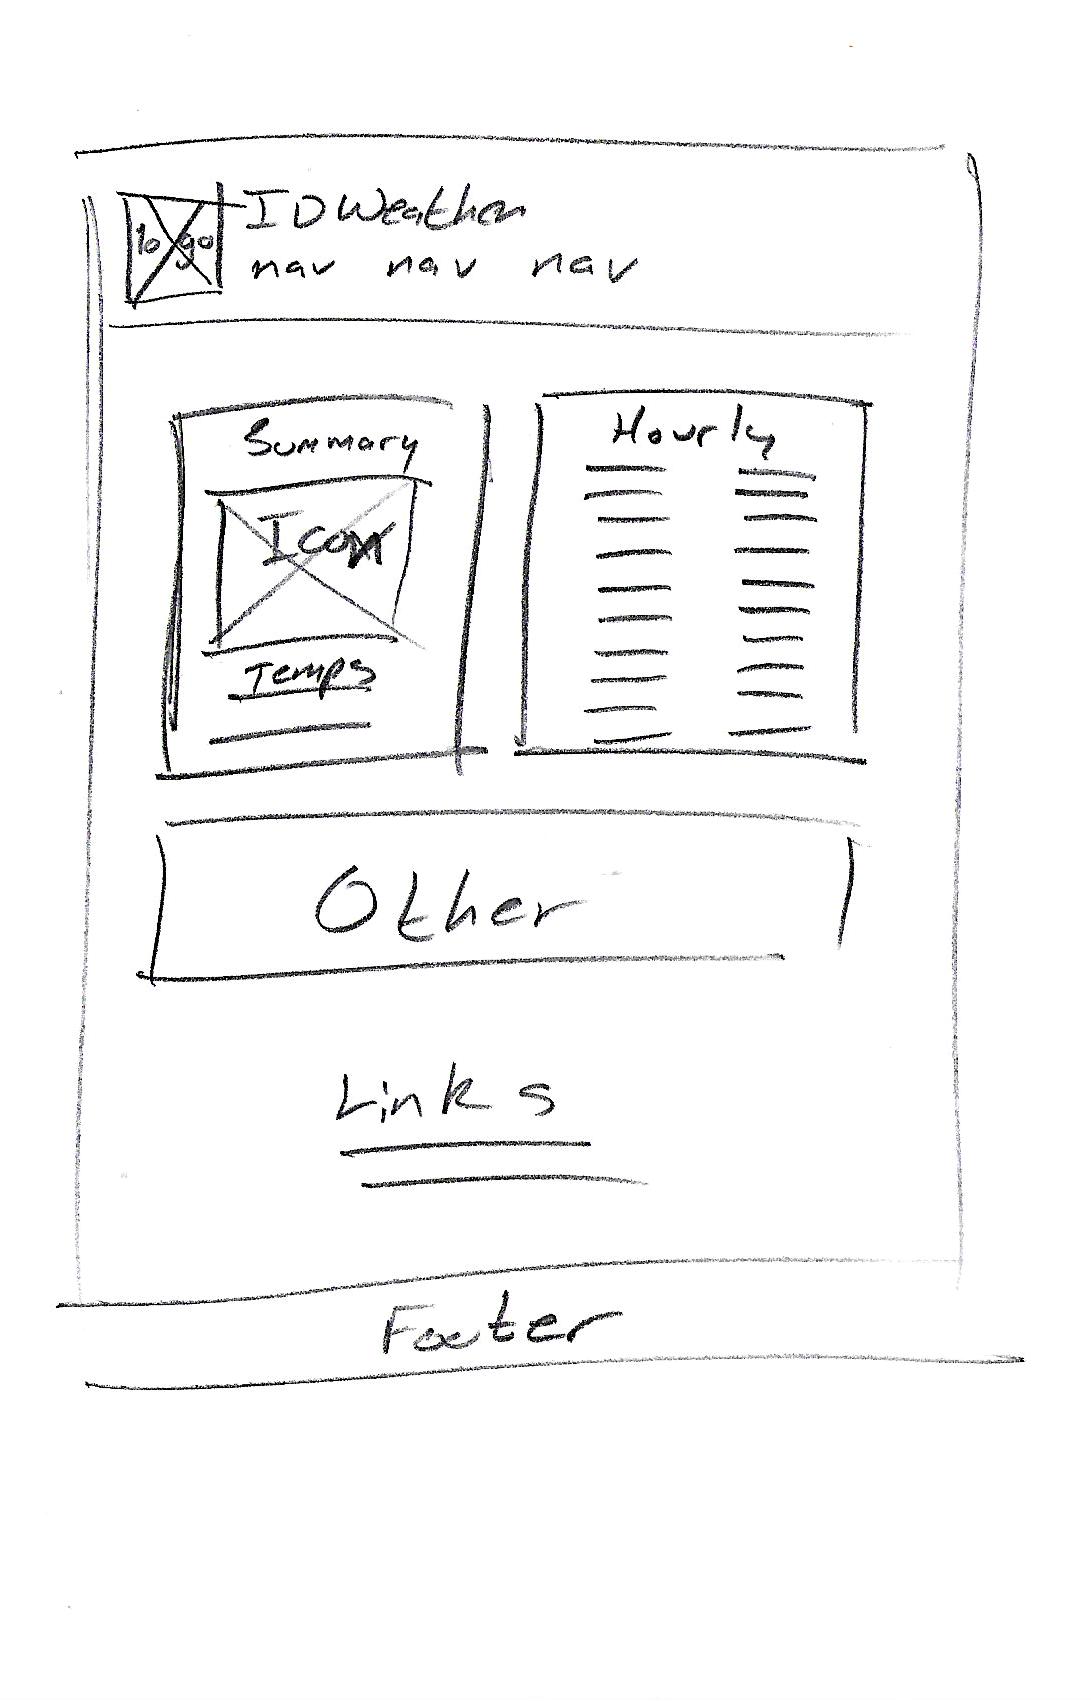 logo
IDWeather
nav nav nav
Summary
Icon
Temps
Hourly
Other
Links
Footer